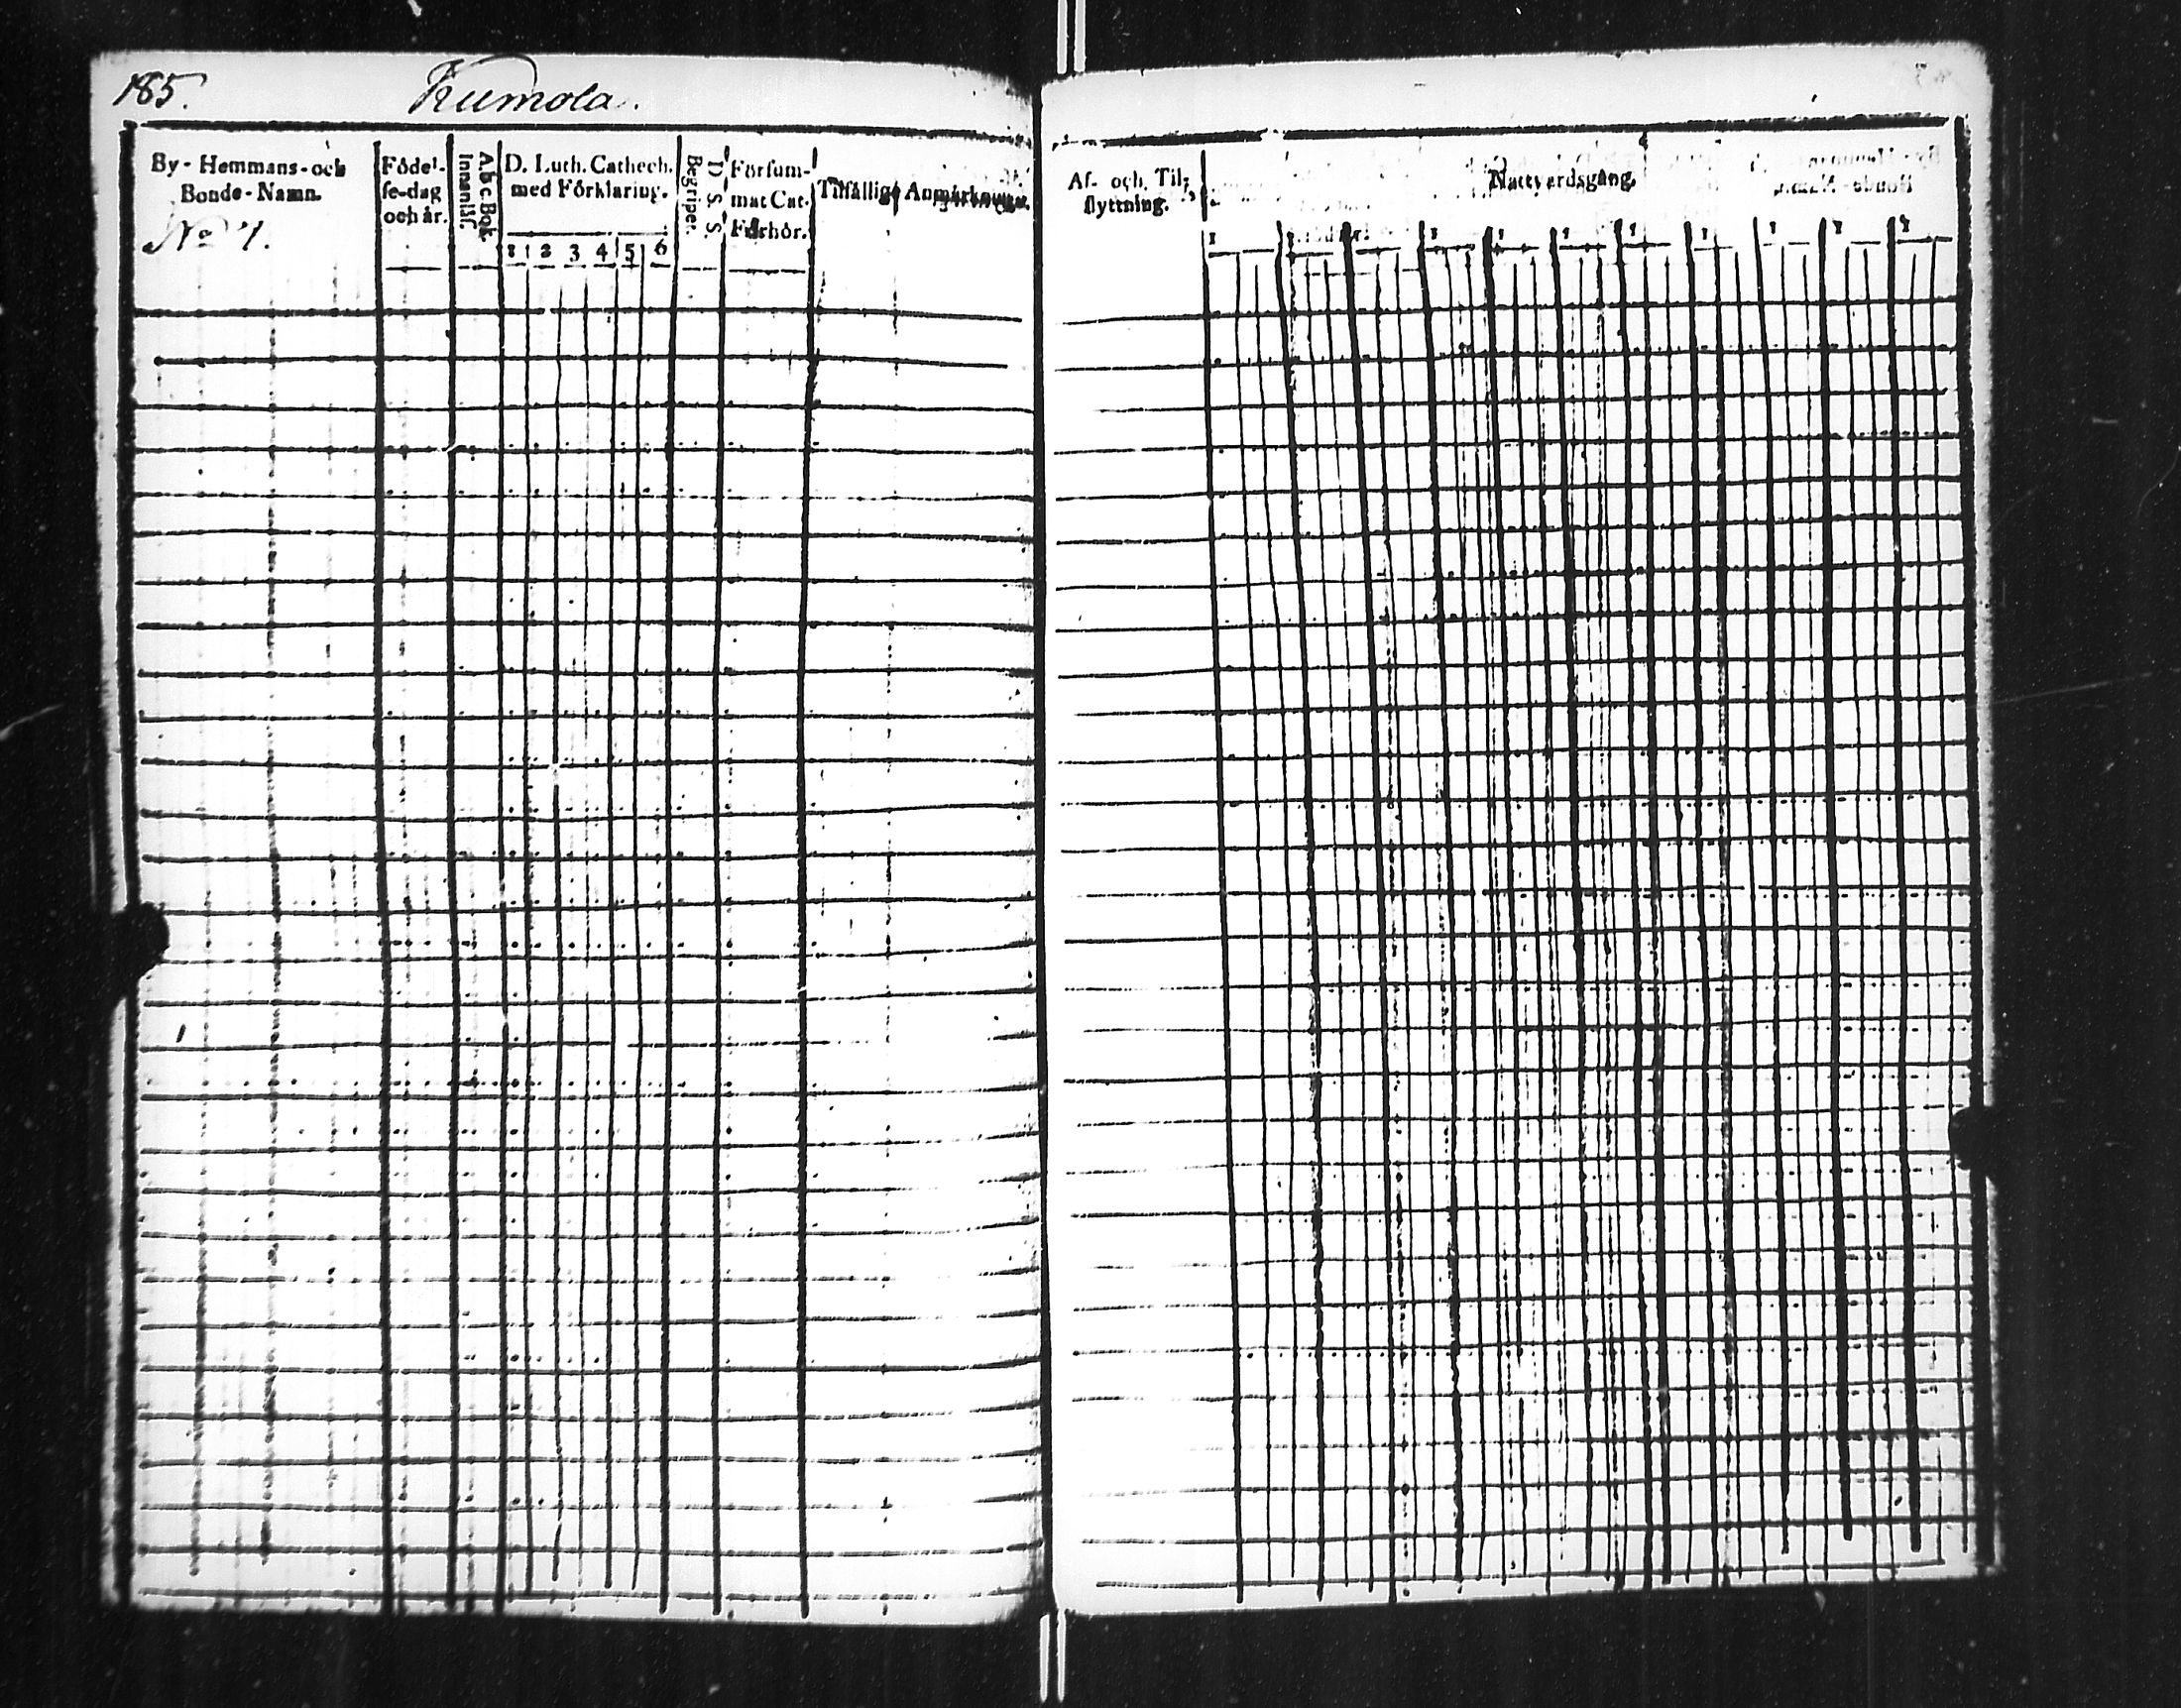 185.
Kumola.
By-Hemmans-och
Bonde-Namn.
No 7.
Födel-
se-dag
och år.
Abc Bok.
Innanläs.
D. Luth. Cathech.
med Förklaring.
1 2 3 4 5 6
D. S. S.
Begriper.
Försum-
mat Cat.
Förhör.
Tilfällige Anmärkningar.
Af- och Til-
flyttning.
Nattvardsgång.